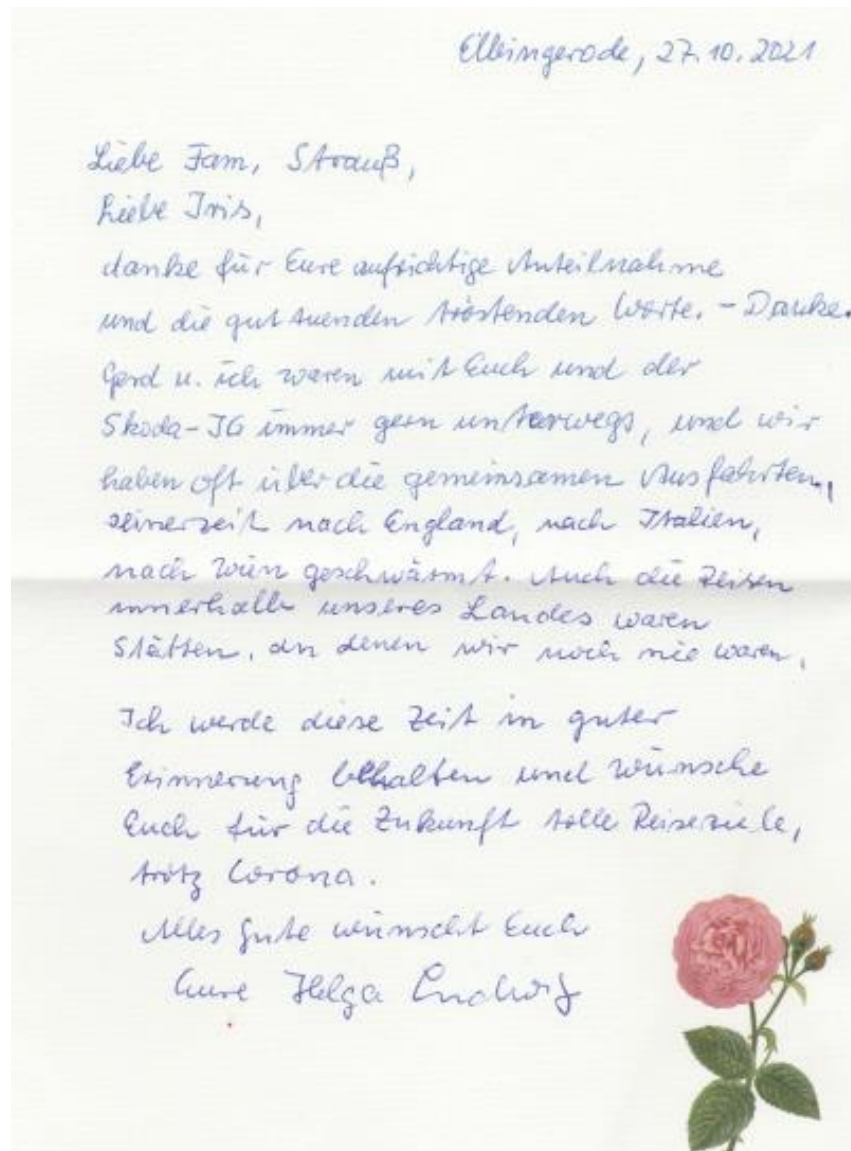 Elbingerode, 27.10.2021
Liebe Fam, Strauß,
Liebe Iris,
danke für Eure aufrichtige Anteilnahme
und die gut tuenden tröstenden Worte. – Danke.
Gerd u. ich waren mit Euch und der
Skoda-IG immer gern unterwegs, und wir
haben oft über die gemeinsamen Ausfahrten,
seinerzeit nach England, nach Italien,
nach Wien geschwärmt. Auch die Reisen
innerhalb unseres Landes waren
Stätten, an denen wir noch nie waren.
Ich werde diese Zeit in guter
Erinnerung behalten und wünsche
Euch für die Zukunft tolle Reiseziele,
trotz Corona.
Alles Gute wünscht Euch
Eure Helga Ludwig